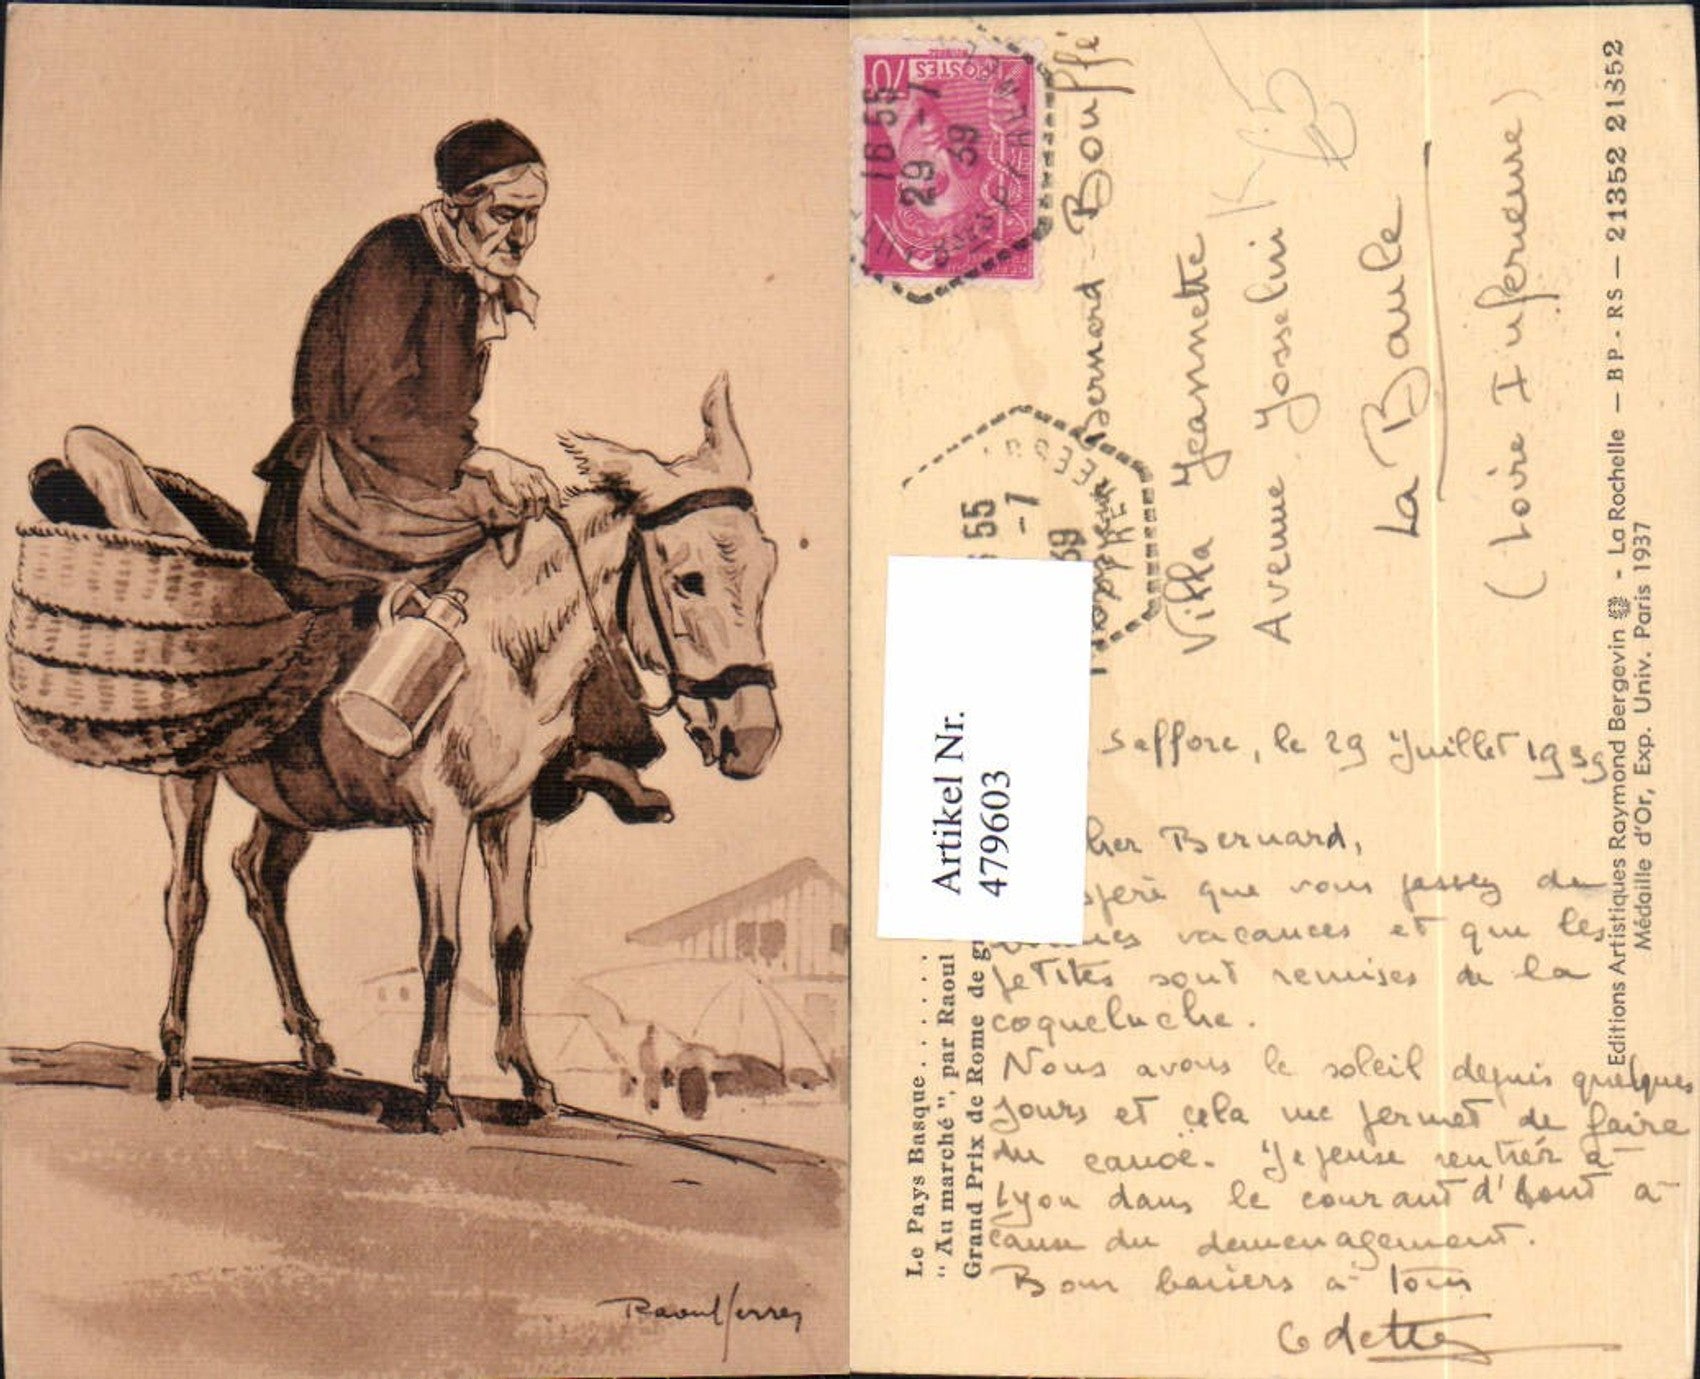 Raoul Serres
POSTES
70
16 55
29 -7
39
Bernard Bouffé
Villa Jeannette
Avenue Josselin
La Baule
(Loire Inférieure)
55
-7
39
Artikel Nr.
479603
Saffore, le 29 Juillet 1939
her Bernard,
que vous passez de
vacances et que les
petites sont remises de la
coqueluche.
Nous avons le soleil depuis quelques
jours et cela me permet de faire
du canoë. Je pense rentrer à
Lyon dans le courant d'août à
cause du déménagement.
Bons baisers à tous
Odette
Le Pays Basque . . . . . . .
" Au marché ", par Raoul
Grand Prix de Rome de g
Editions Artistiques Raymond Bergevin - La Rochelle — BP - RS — 21352 21352
Médaille d'Or, Exp. Univ. Paris 1937